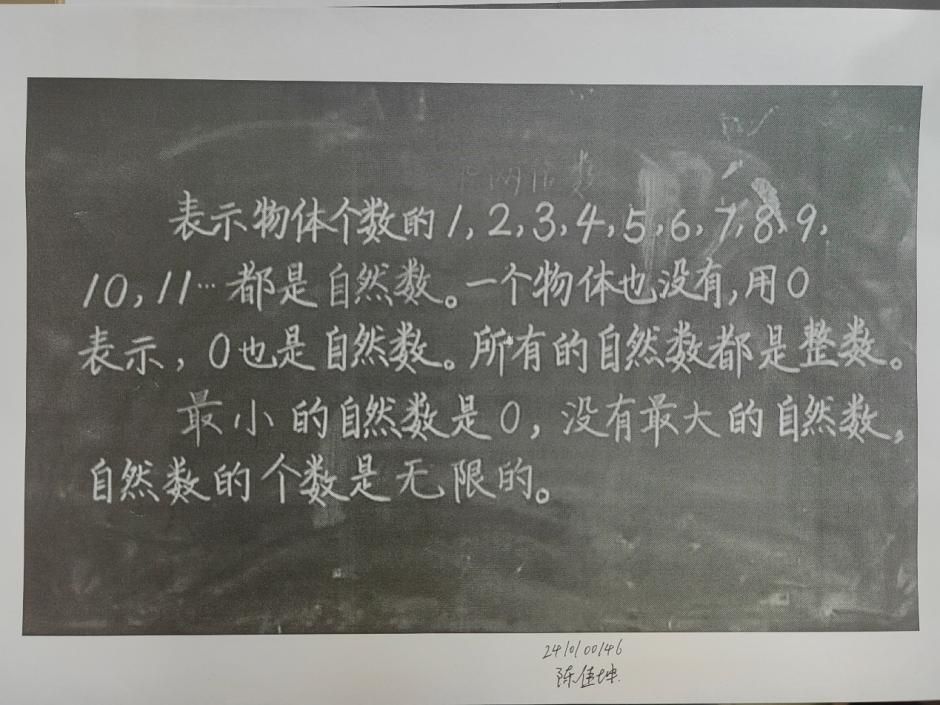 表示物体个数的1,2,3,4,5,6,7,8,9,
10,11…都是自然数。一个物体也没有,用0
表示,0也是自然数。所有的自然数都是整数。
最小的自然数是0,没有最大的自然数,
自然数的个数是无限的。
2410100146
陈佳坤